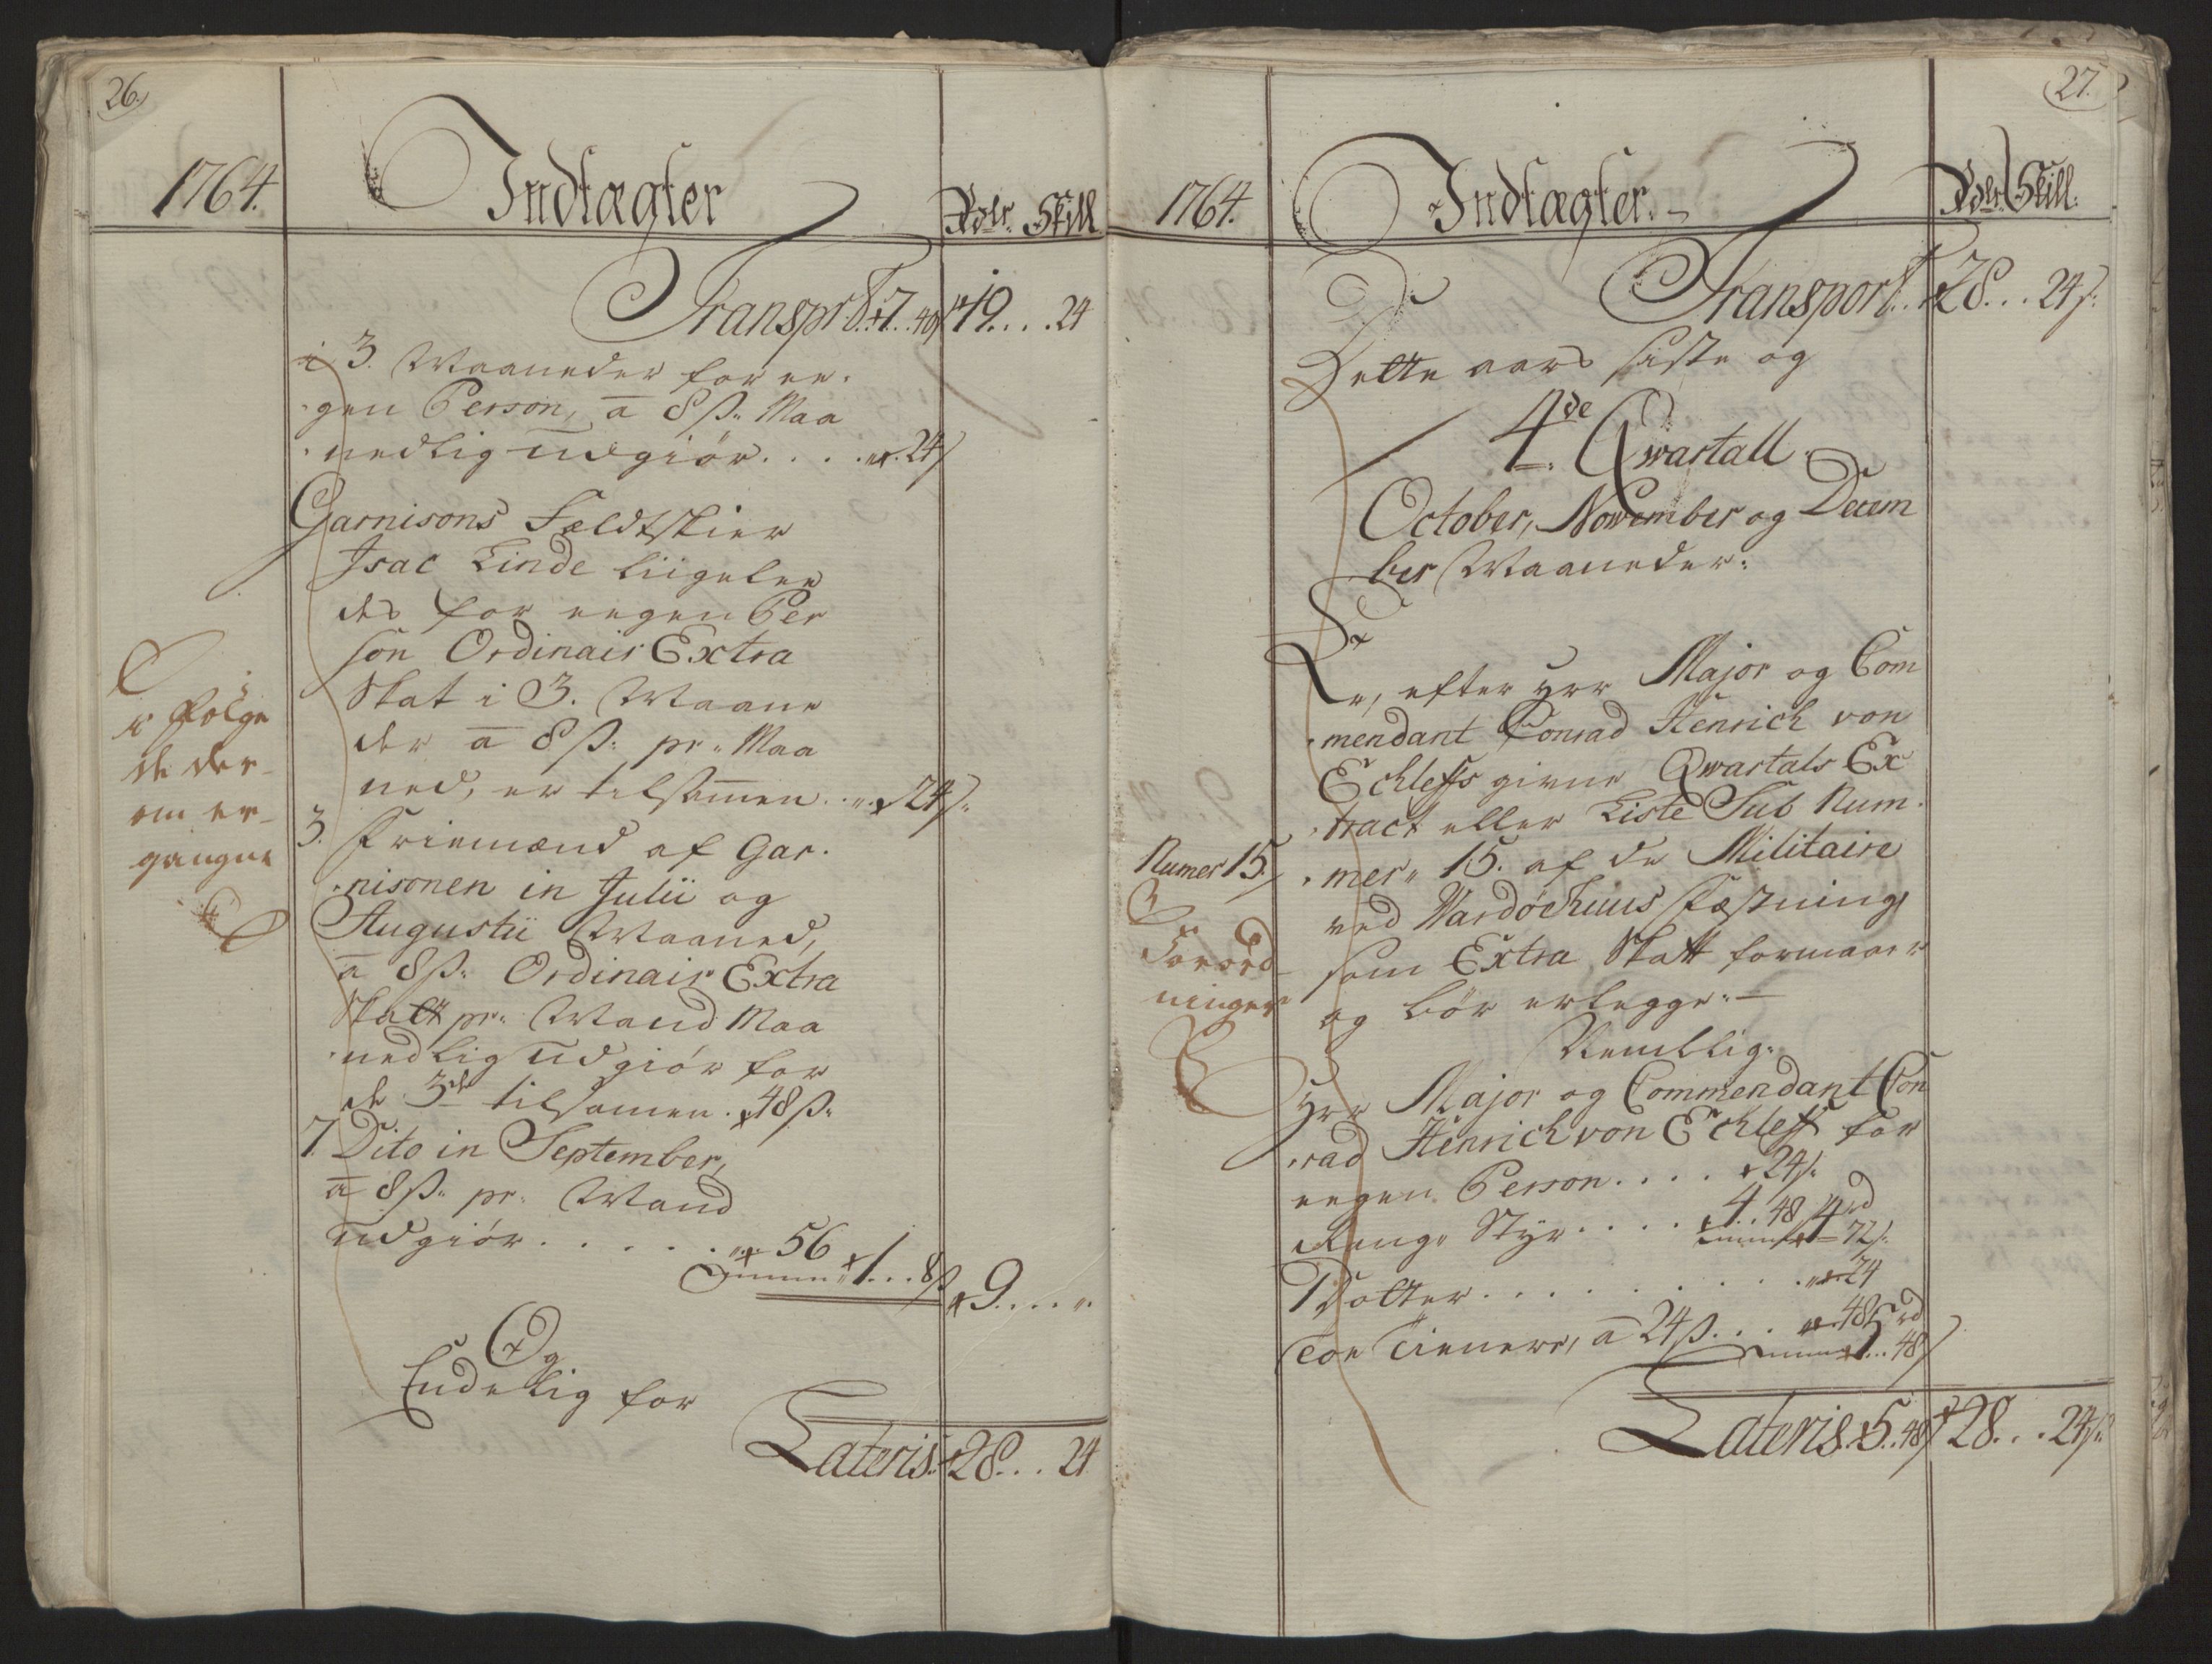 26.
1764.
Indtægter
Rdlr. Skill
Transpr 7. 40 19. . . . 24
i 3. Maaneder for ee-
gen Person, a 8 ß. Maa
nedlig udgiør . . . . 24
Garnisons Feldtskier
Isac Linde liigelee
des for eegen Per
son Ordinair Extra
Skat i 3. Maane
der a 8 ß: pr. Maa
ned, er tilsamen . . . 24 ß:
følge
de der-
om er-
gangne
3. Friemænd af Gar-
nisonen in Julii og
Augustii Maaned,
a 8 ß: Ordinair Extra
Skatt pr: Mand Maa
nedlig udgiør for
de 3de tilsamen . 48 ß:
7. Dito in September,
a 8 ß: pr: Mand
udgiør . . . . . . 56
1. . . 8 ß 9. . . . „
Og
Endelig for
Lateris. 28. . . 24
27.
1764.
Indtægter.
Rdlr. Skill.
Transport. 28. . . 24 ß:
Dette aars siste og
4de Qwartall
October, November og Decem
ber Maaneder:
Er, efter Hrr Major og Com
mendant Conrad Henrich von
Eckleffs givne Qwartals Ex
tract eller Liste Sub Num-
Numer 15.
mer. 15. af de Militaire
ved Wardøehuus Fæstning
Forord-
ninger
som Extra Skatt formaaer
og bør erlegge: —
Nemblig:
Hrr Major og Commendant Con
rad Henrich von Eckleff for
eegen Person . . . . 24 ß:
Rangs Styr . . . . 4. . 48 4 rd 72 ß:
1 Dotter . . . . . . . . 24
Toe Tienere, a 24 ß. . . 48 5 rd
1. . . 48
Lateris. 5. . 48 28. . . 24 ß: